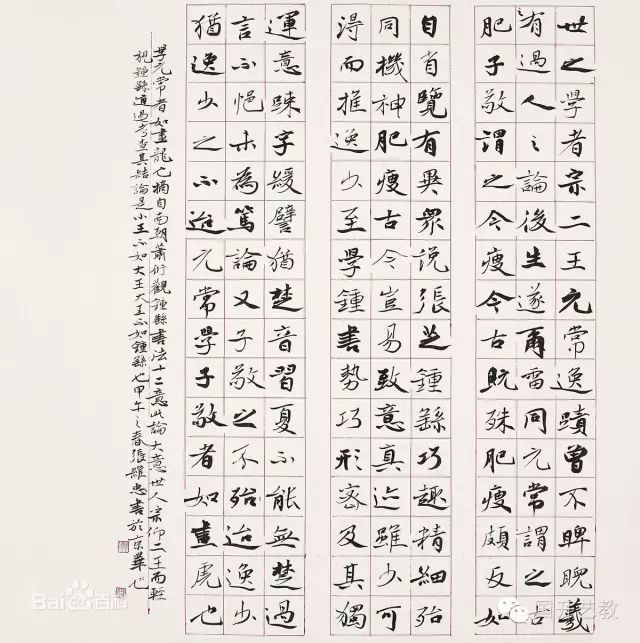 世之學者宗二王元常逸蹟曾不睥睨羲
之有過人之論後生遂爾雷同元常謂之古
肥子敬謂之今瘦今古既殊肥瘦頗反如
自省覽有異眾說張芝鍾繇巧趣精細殆
同機神肥瘦古今豈易致意真迹雖少可
得而推逸少至學鍾書勢巧形密及其獨
運意疎字緩譬猶楚音習夏不能無楚過
言不悒未為篤論又子敬之不殆迨逸少
猶逸少之不迨元常學子敬者如畫虎也
學元常者如畫龍也摘自南朝蕭衍觀鍾繇書法十二意此論大意世人宗仰二王而輕
視鍾繇通過考查其結論是小王不如大王大王不如鍾繇也甲午之春張維忠書於京華
Bai百科